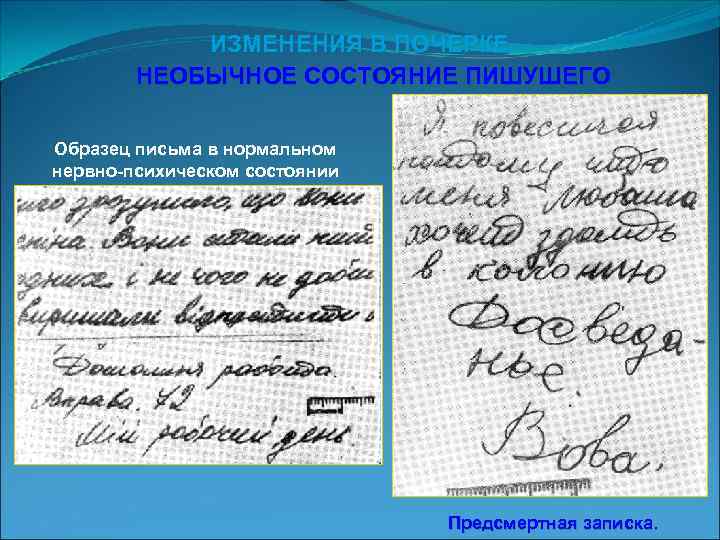 ИЗМЕНЕНИЯ В ПОЧЕРКЕ
НЕОБЫЧНОЕ СОСТОЯНИЕ ПИШУШЕГО
Образец письма в нормальном
нервно-психическом состоянии
зрозуміло, що вони
Вони стали
і не чого не доби
вирішали відпустити
Домашня работа.
Вправа. 72
Мій робочий день.
Я повесился
потому што
меня Любаша
хочет здать
в колонию
Досведа-
нье.
Вова.
Предсмертная записка.